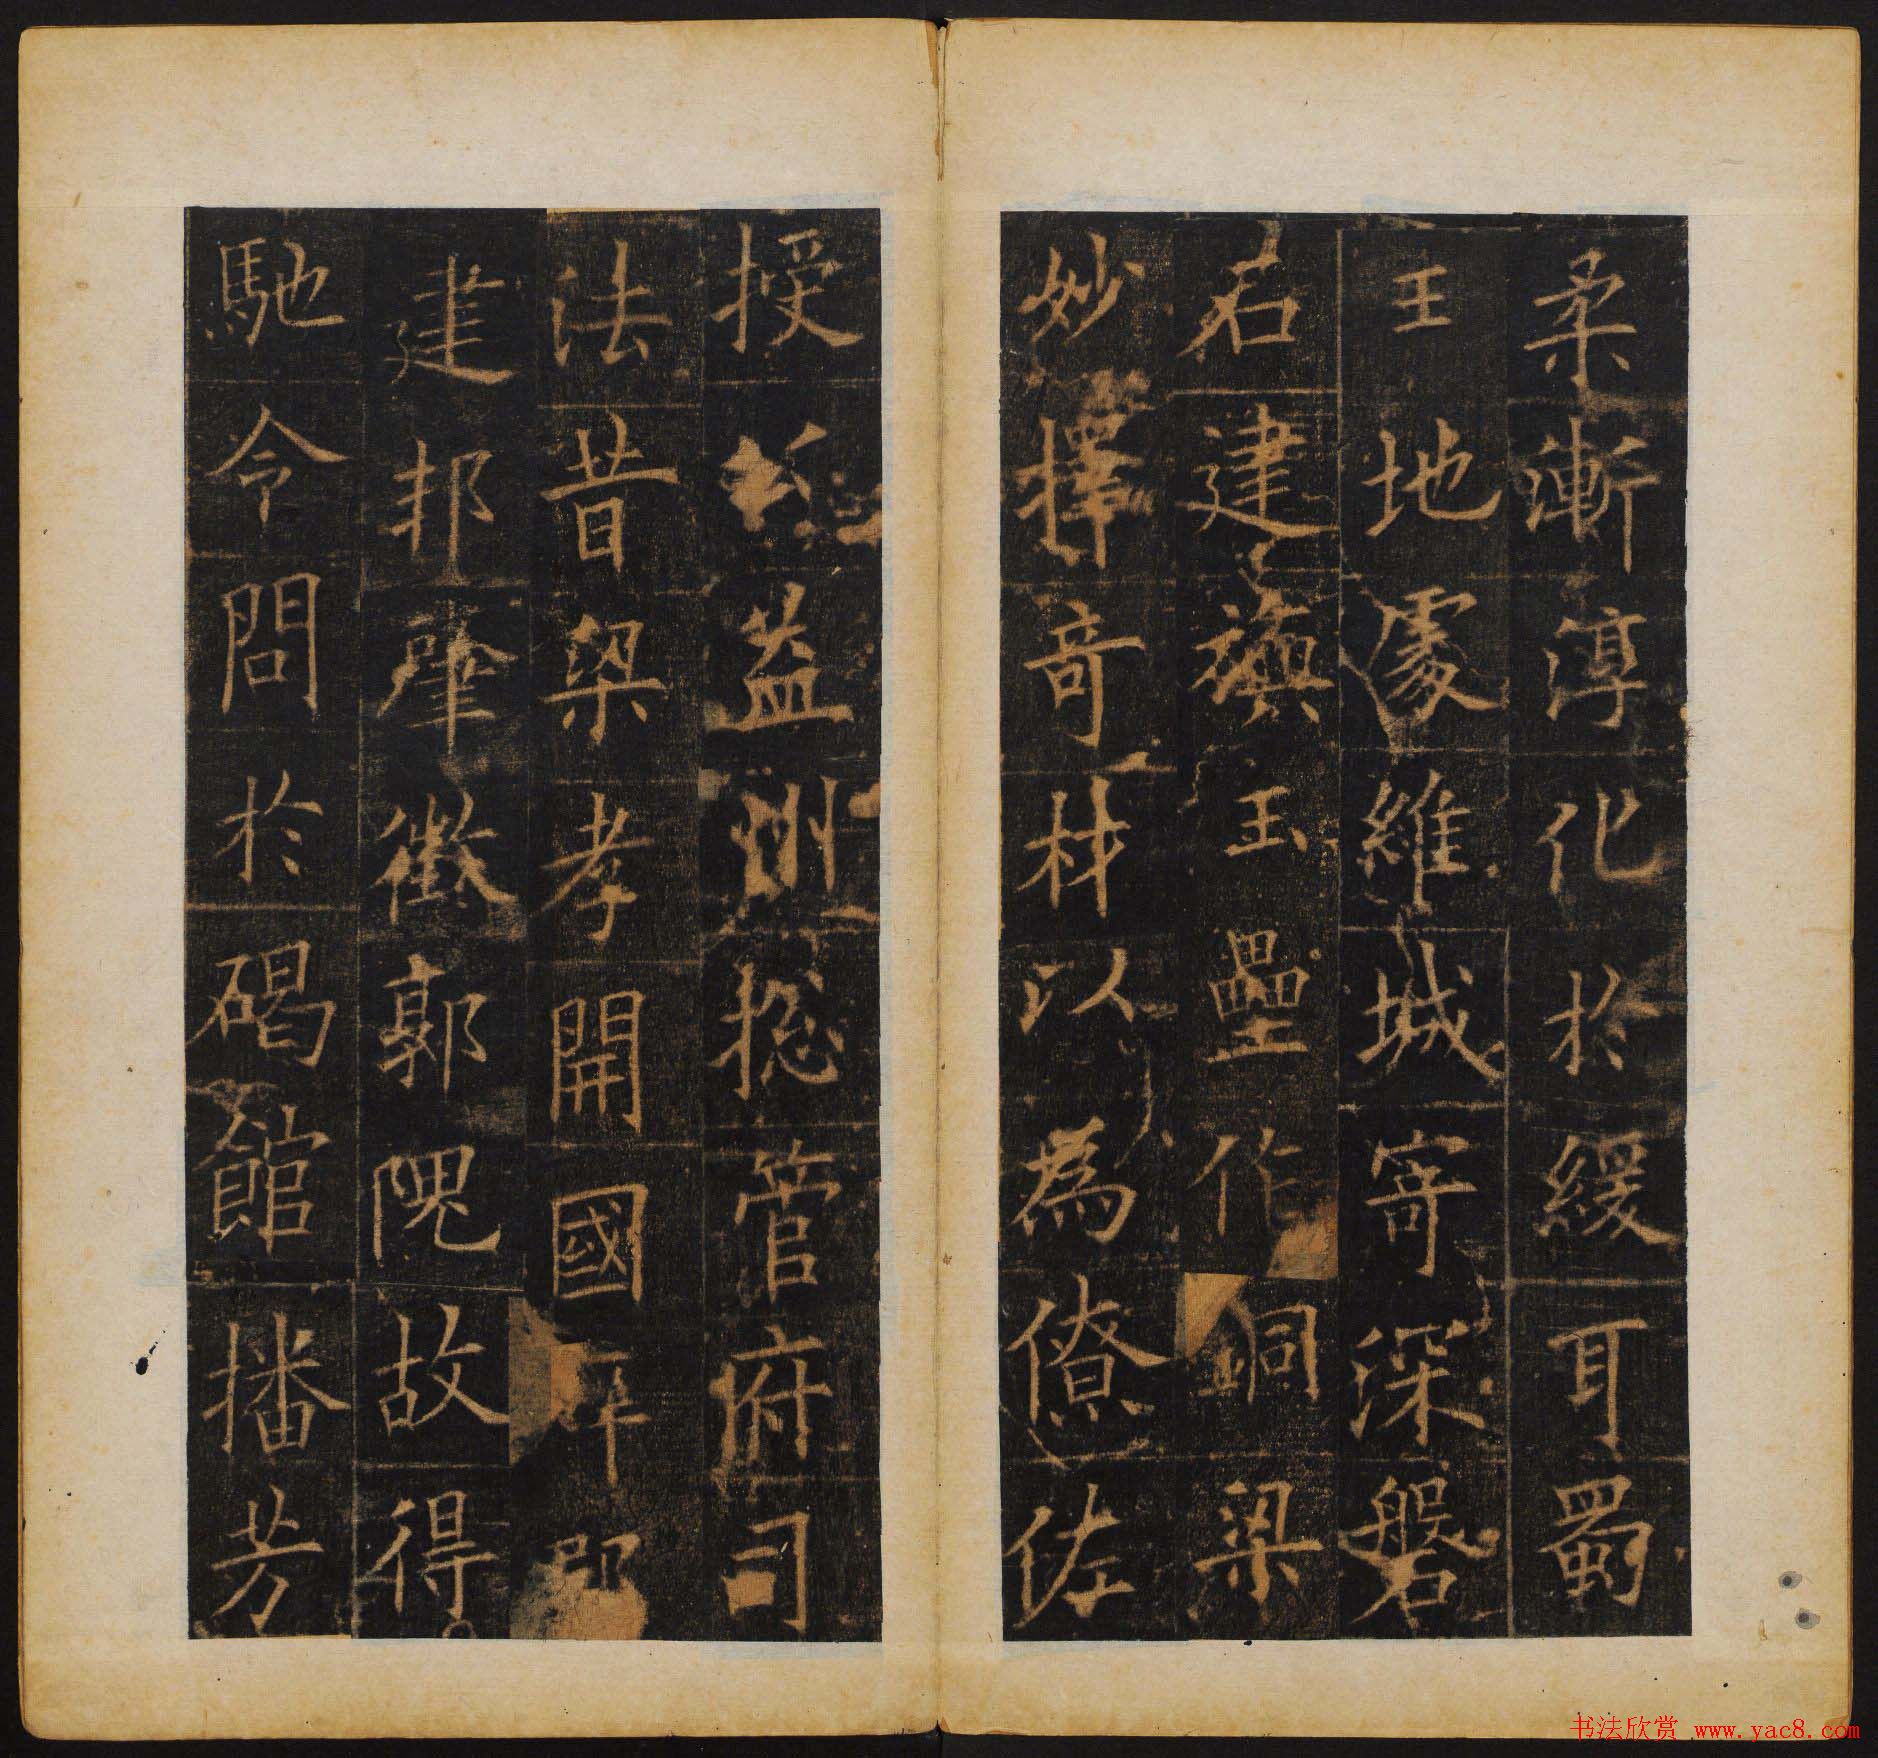 柔漸淳化於緩耳蜀
王地處維城寄深磐
石建旟玉壘作銅梁
妙擇奇材以為僚佐
授公益州揔管府司
法昔梁孝開國
建邦肇徵郭隗故得
馳令問於碣館播芳
书法欣赏 www.yac8.com